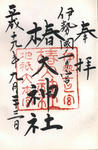 奉拝
伊勢國一之宮
椿大神社
平成十九年九月二十三日